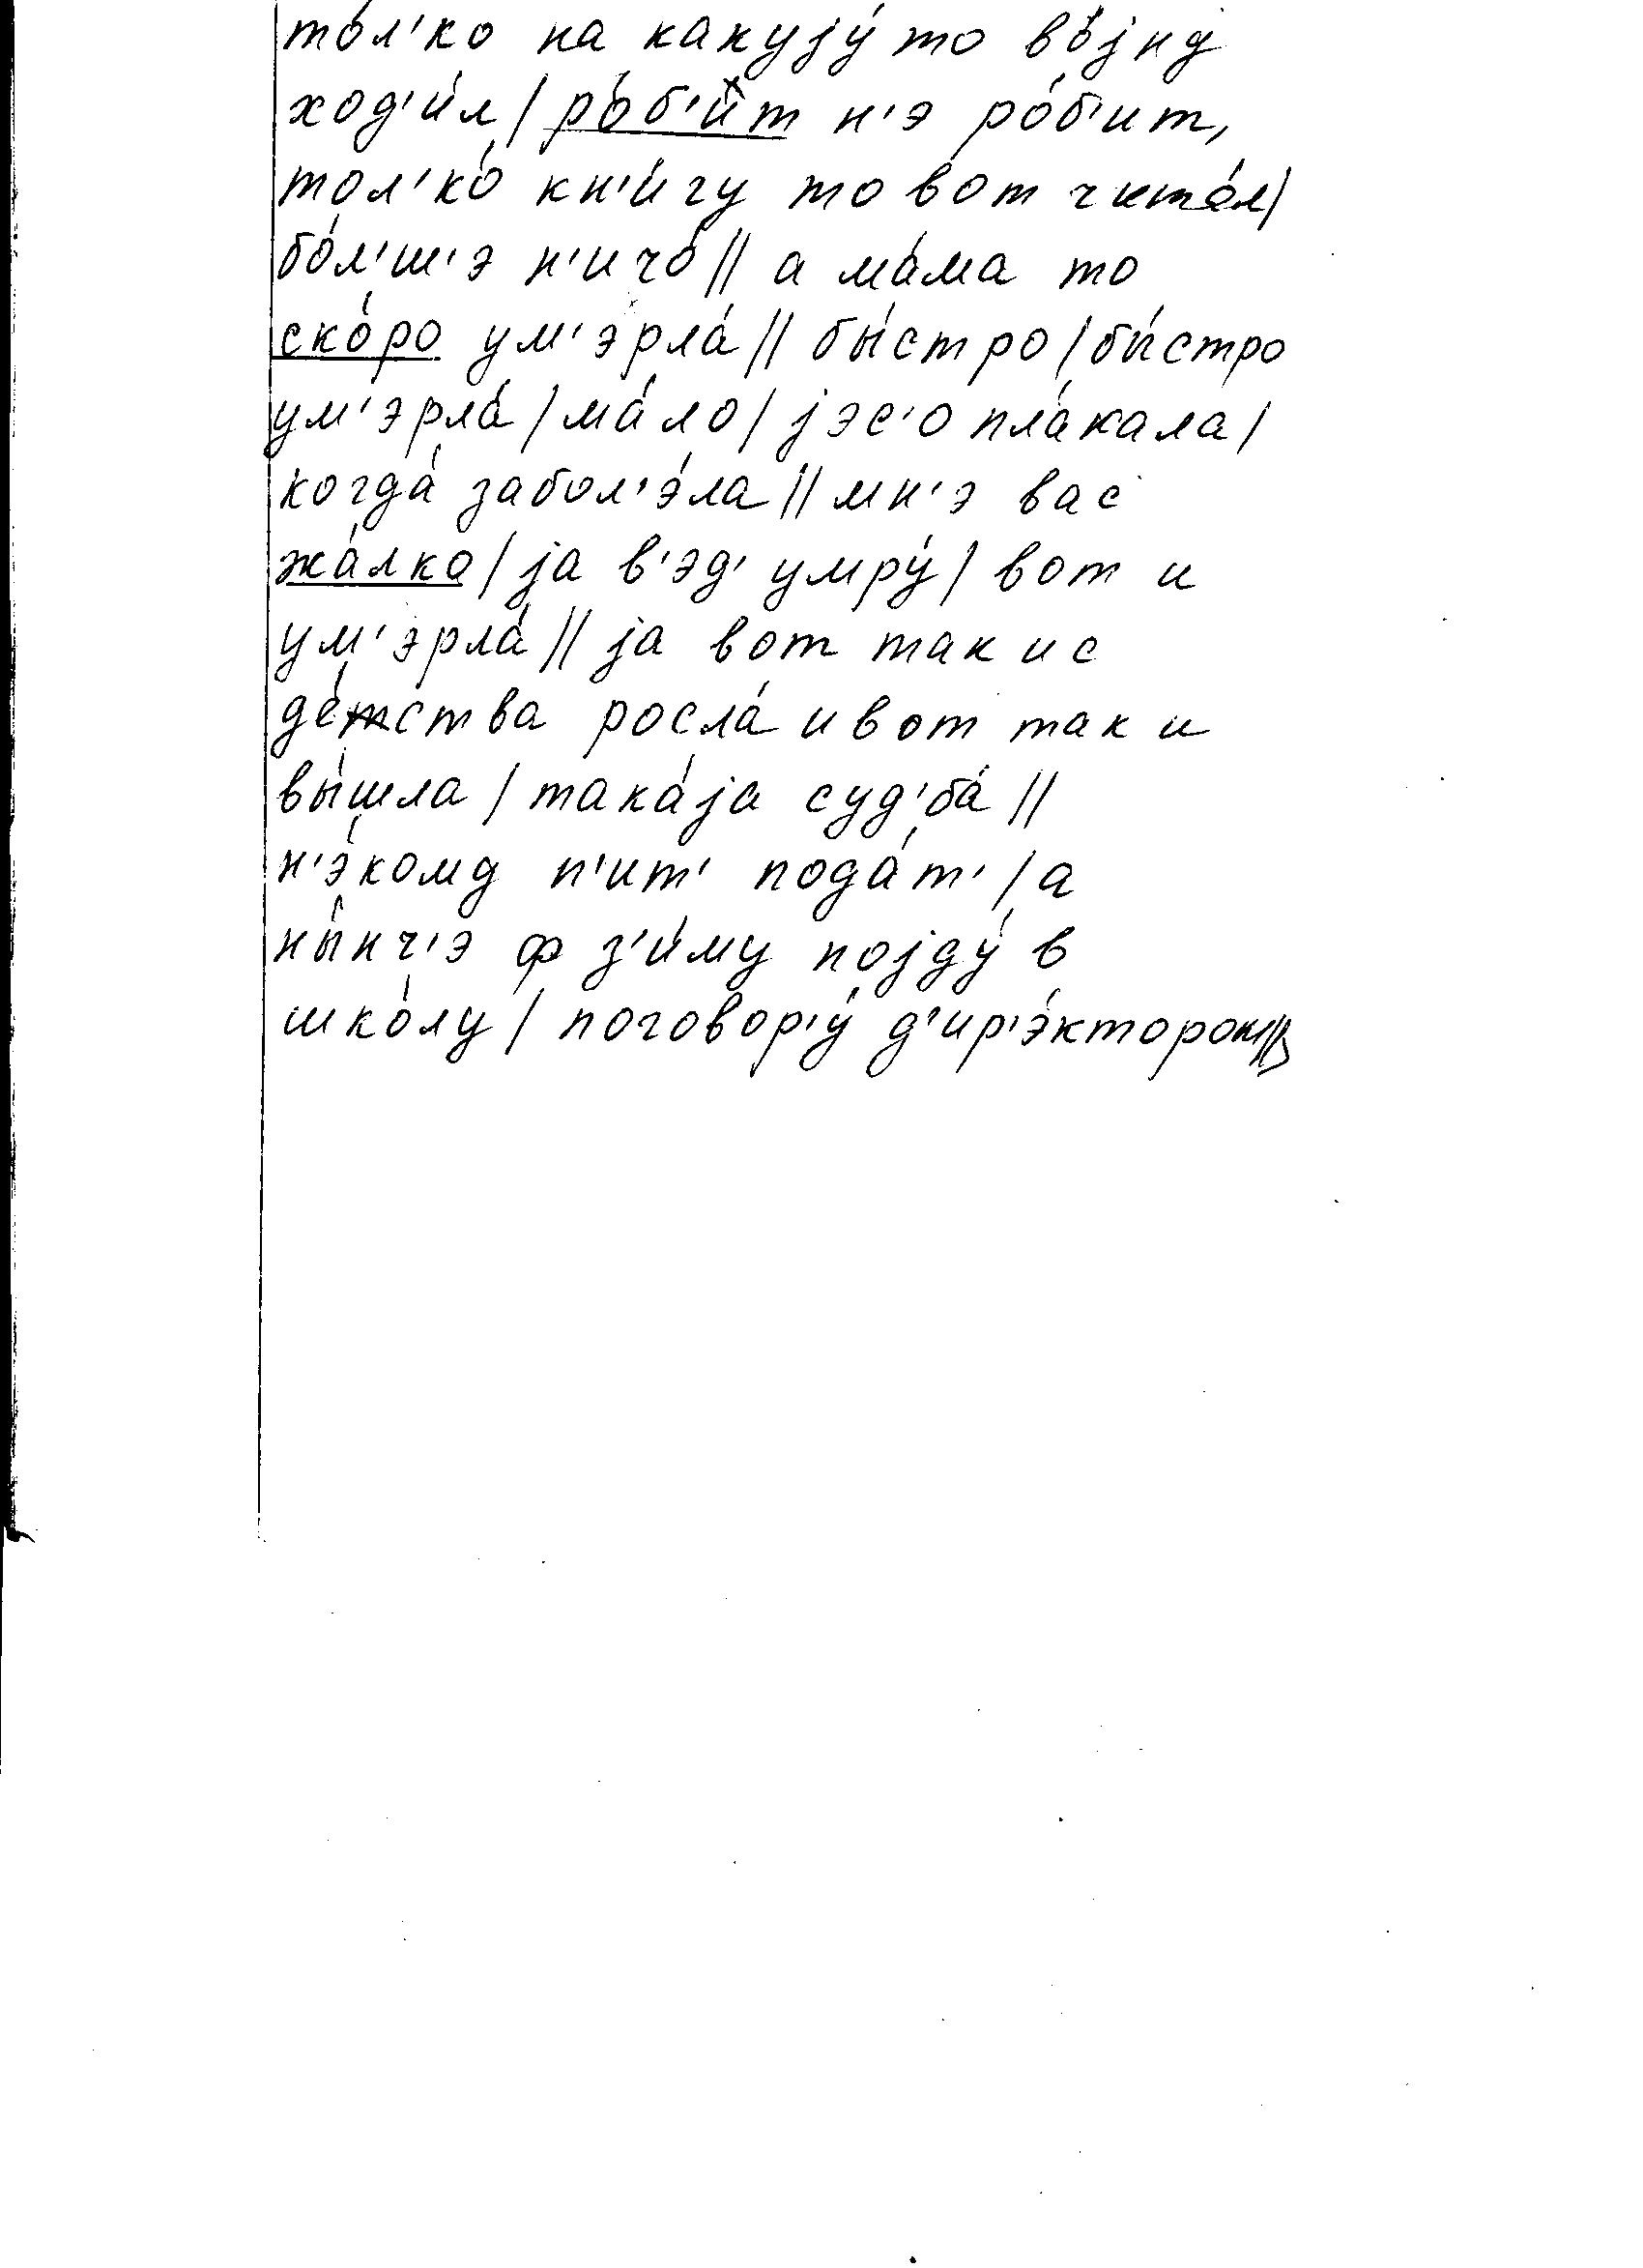 то́л'ко на какују́ то во́јну
ход'и́л / ро́б'ит н'э ро́б'ит,
тол'ко́ кн'и́гу то вот чита́л /
бо́л'ш'э н'ичо́ // а ма́ма то
ско́ро ум'эрла́ // бы́стро / бы́стро
ум'эрла́ / ма́ло / јэс'о пла́кала /
когда́ забол'э́ла // мн'э вас
жа́лко / ја в'эд' умру́ / вот и
ум'эрла́ // ја вот так и с
де́тства росла́ и вот так и
вы́шла / така́ја суд'ба́ //
н'э́кому п'ит' пода́т' / а
ны́нч'э ф з'и́му појду́ в
шко́лу / поговор'у́ д'ир'э́ктором //